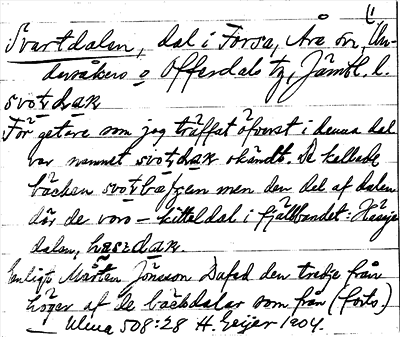 (1
Svartdalen, dal i Forsa, Åre sn, Un-
dersåkers o Offerdals tg, Jämtl. l.
svo̱tdaɐ
För getare som jag träffat öfverst i denna dal
var namnet okändt. De kallade
bäcken men den del af dalen
där de voro – kitteldal i fjällbandet: Häsje
dalen,
Enligt Mårten Jönsson Dafad den tredje från
höger af de bäckdalar som från (forts.)
Ulma 508:28 H. Geijer 1904.